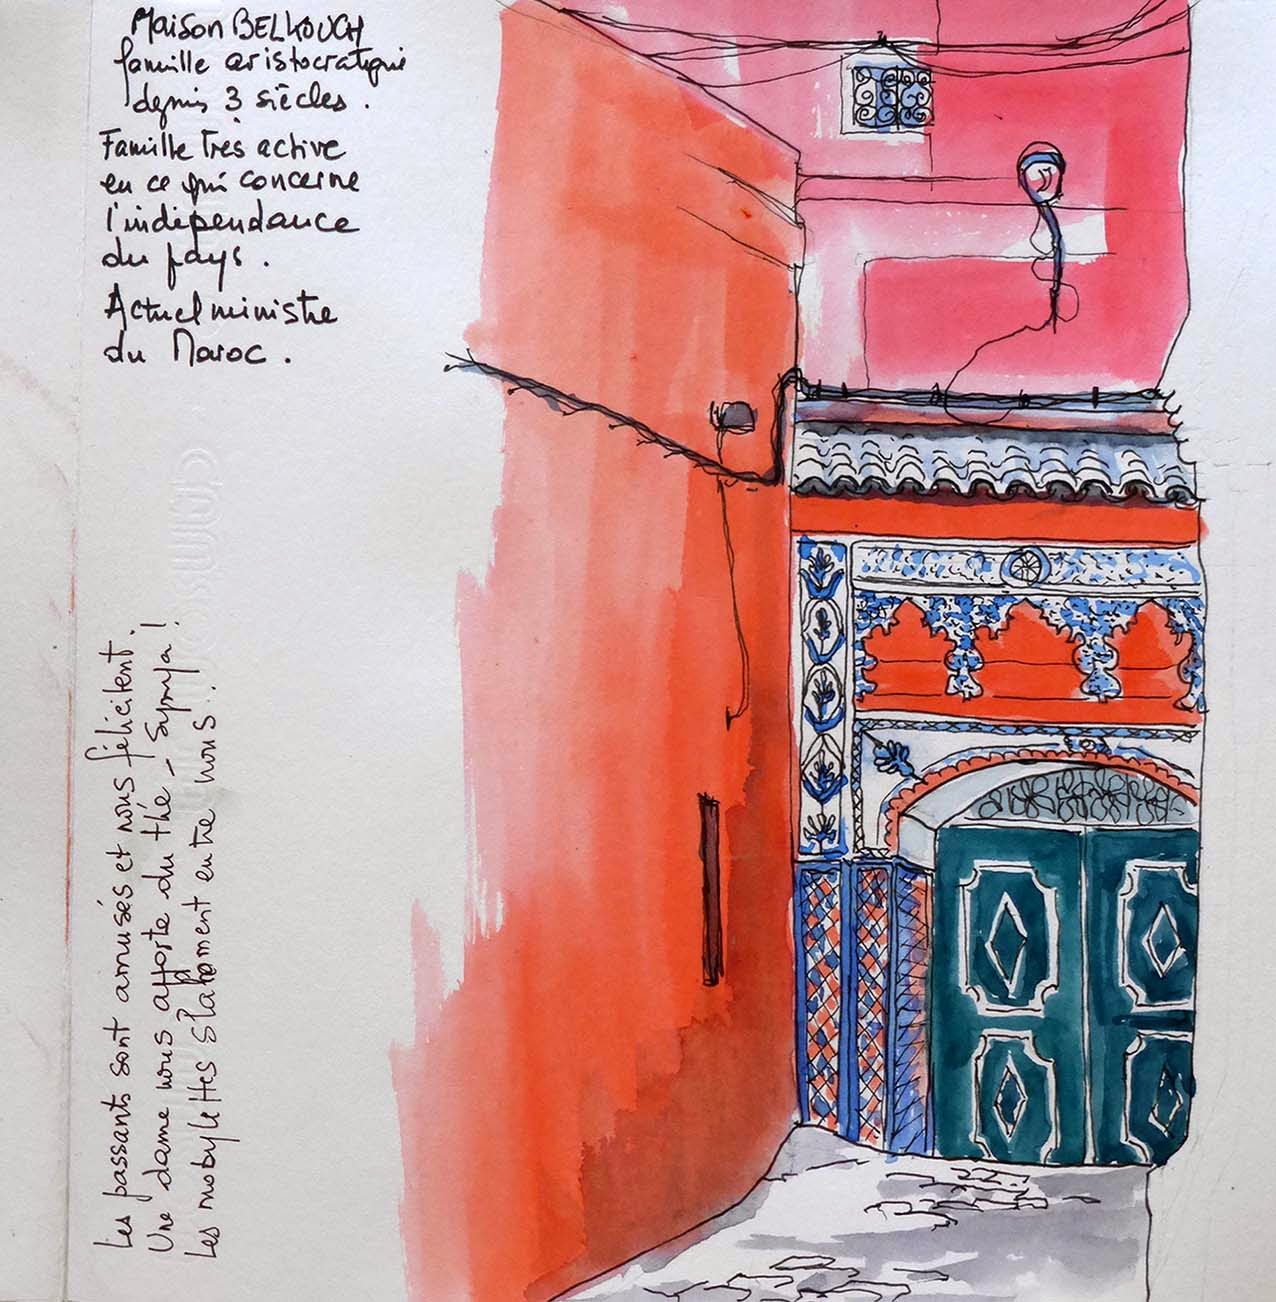 Maison BELKOUCH
famille aristocratique
depuis 3 siècles.
Famille très active
en ce qui concerne
l'indépendance
du pays.
Actuel ministre
du Maroc.
Les passants sont amusés et nous félicitent.
Une dame nous apporte du thé - sympa!
Les mobylettes slaloment entre nous!